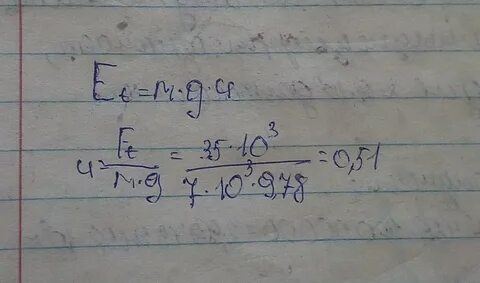 E_t = m·g·h
h = E_t / m·g = 35·10³ / 7·10³·9,78 = 0,51